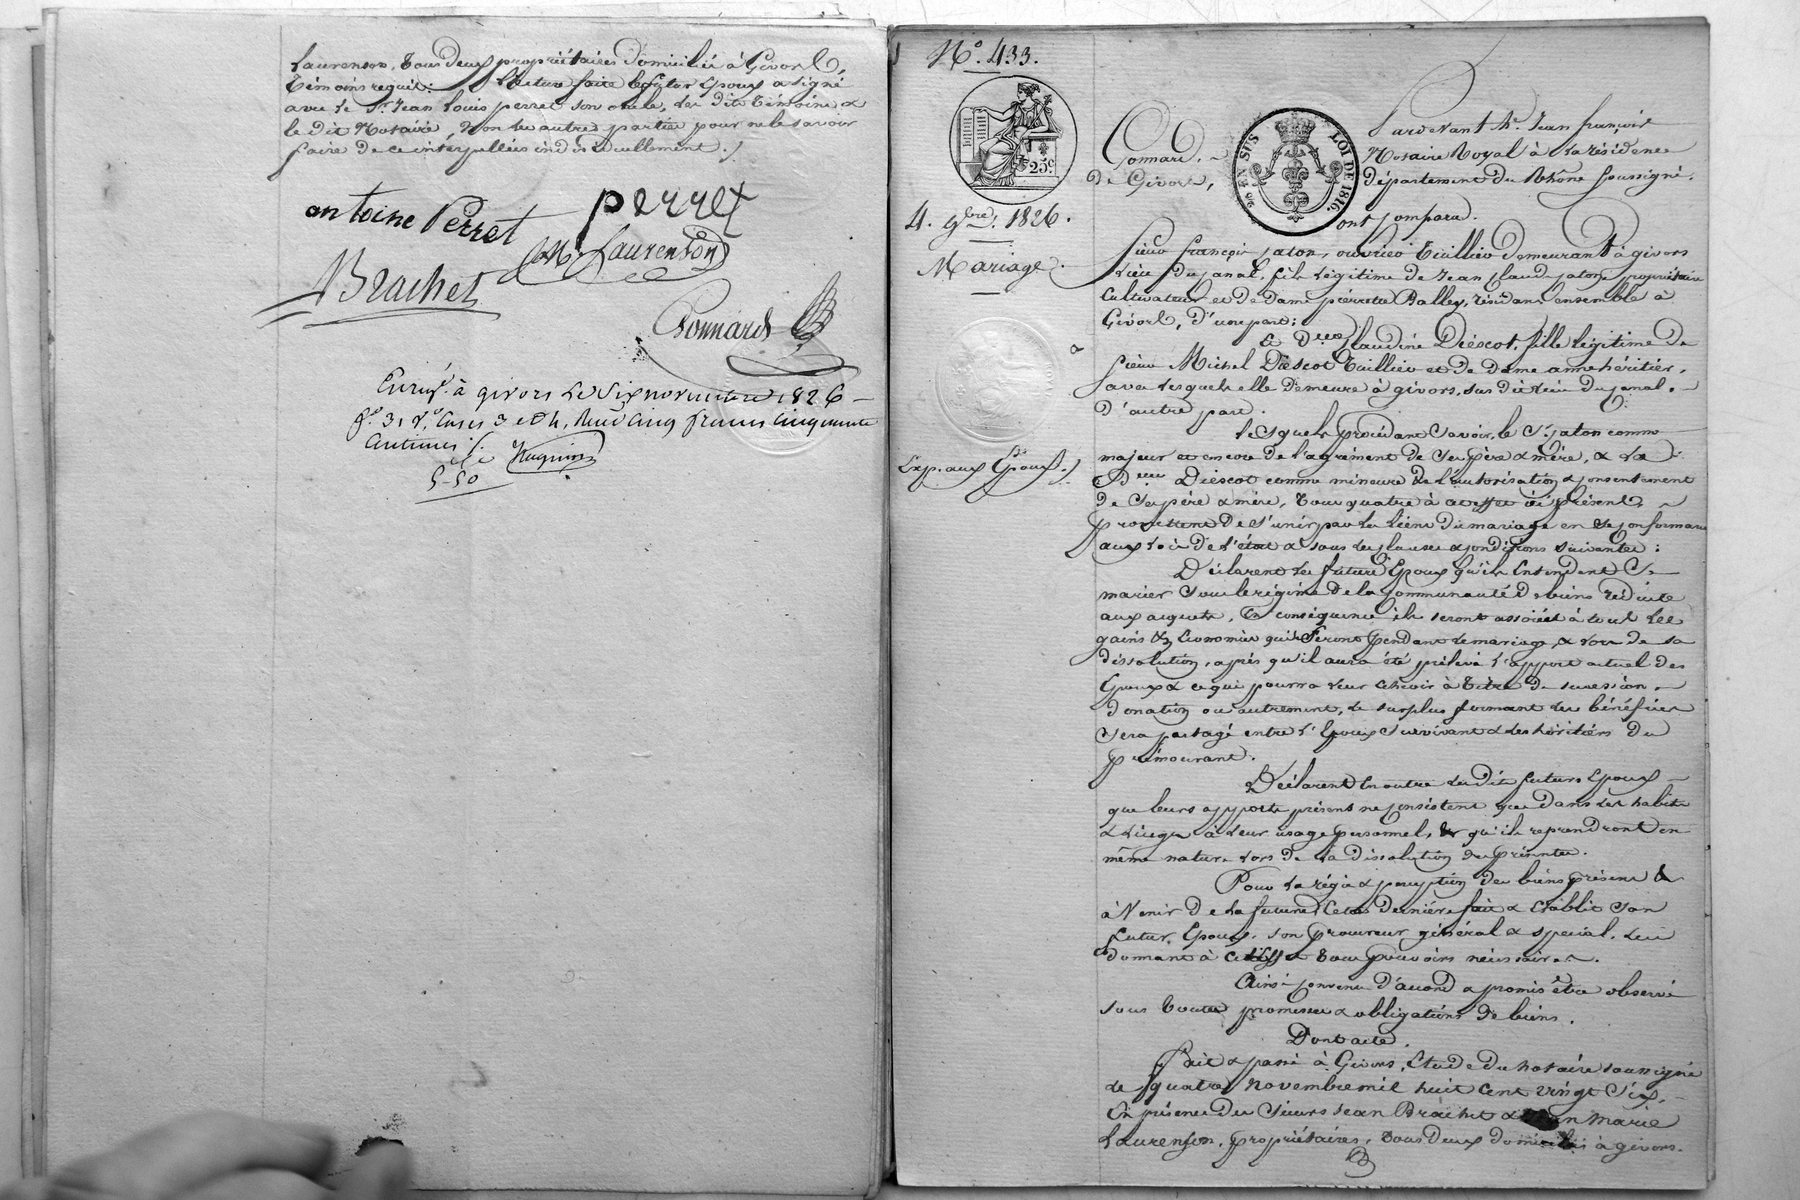 Laurenson, tous deux propriétaires domiciliés à Givors,
témoins requis: Lecture faite le futur Epoux a signé
avec le Sr. Jean Louis perret son oncle, les dits témoins &
le dit Notaire, non les autres parties pour ne le savoir
faire de ce interpellées individuellement ./
antoine Perret
perret
JM Laurenson
JBrachet
Gonnard
Enregé. à givors le Six novembre 1826
fo. 31 vo. Cases 3 et 4, Reçu Cinq francs Cinquante
Centimes /.
5-50
No. 433.
25c.
96 EN SUS
LOI DE 1816.
4. 9bre. 1826.
Mariage.
Exp. aux Epoux ./
Pardevant Me. Jean françois
Gonnard,
Notaire Royal à la résidence
de Givors,
département du Rhône soussigné.
ont comparu.
Sieur françois Jaton, ouvrier tuillier demeurant à givors
lieu du canal, fils légitime de Jean Claude Jaton propriétaire
Cultivateur et de dame pierrette Balley, résidans ensemble à
Givors, d'une part;
Et Dlle Claudine Diéscot, fille légitime de
sieur Michel Diéscot tuillier et de dame anne héritier,
avec lesquels elle demeure à givors, sus dit lieu du canal.
d'autre part.
Lesquels procédant Savoir, le Sr. Jaton comme
majeur et encore de l'agrément de ses père & mère, & la
Dlle Diéscot comme mineure de l'autorisation & consentement
de ses père & mère, tous quatre à cet effet ici présents,
promettent de s'unir par les liens du mariage en se conformant
aux lois de l'état & sous les clauses & conditions suivantes:
Déclarent les futurs Epoux qu'ils Entendent Se
marier Sous le régime de la Communauté de biens réduite
aux acquets, En conséquence ils seront associés à tous les
gains & Economies qu'ils feront pendant le mariage, & lors de sa
dissolution, après qu'il aura été prélevé l'apport actuel des
Epoux & ce qui pourra leur échoir à titre de succession,
donation ou autrement, le surplus formant les bénéfices
Sera partagé entre l'Epoux Survivant & les héritiers du
prémourant.
Déclarent En outre les dits futurs Epoux
que leurs apports présents ne consistent que dans les habits
& linges à leur usage personnel, & qu'ils reprendront en
même nature lors de la dissolution des présentes.
Pour la régie & perception des biens présens &
à Venir de la future, Cette dernière fait & établit Son
futur Epoux, son Procureur général & spécial, lui
donnant à cet effet tous pouvoirs nécessaires.
Ainsi convenu d'accord & promis être observé
sous toutes promesses & obligations de biens.
Dont acte.
Fait & passé à Givors, Etude du notaire soussigné
le quatre novembre mil huit cent vingt Six,
En présence des Sieurs Jean Brachet & Jean Marie
Laurenson, propriétaires, tous deux domiciliés à givors.